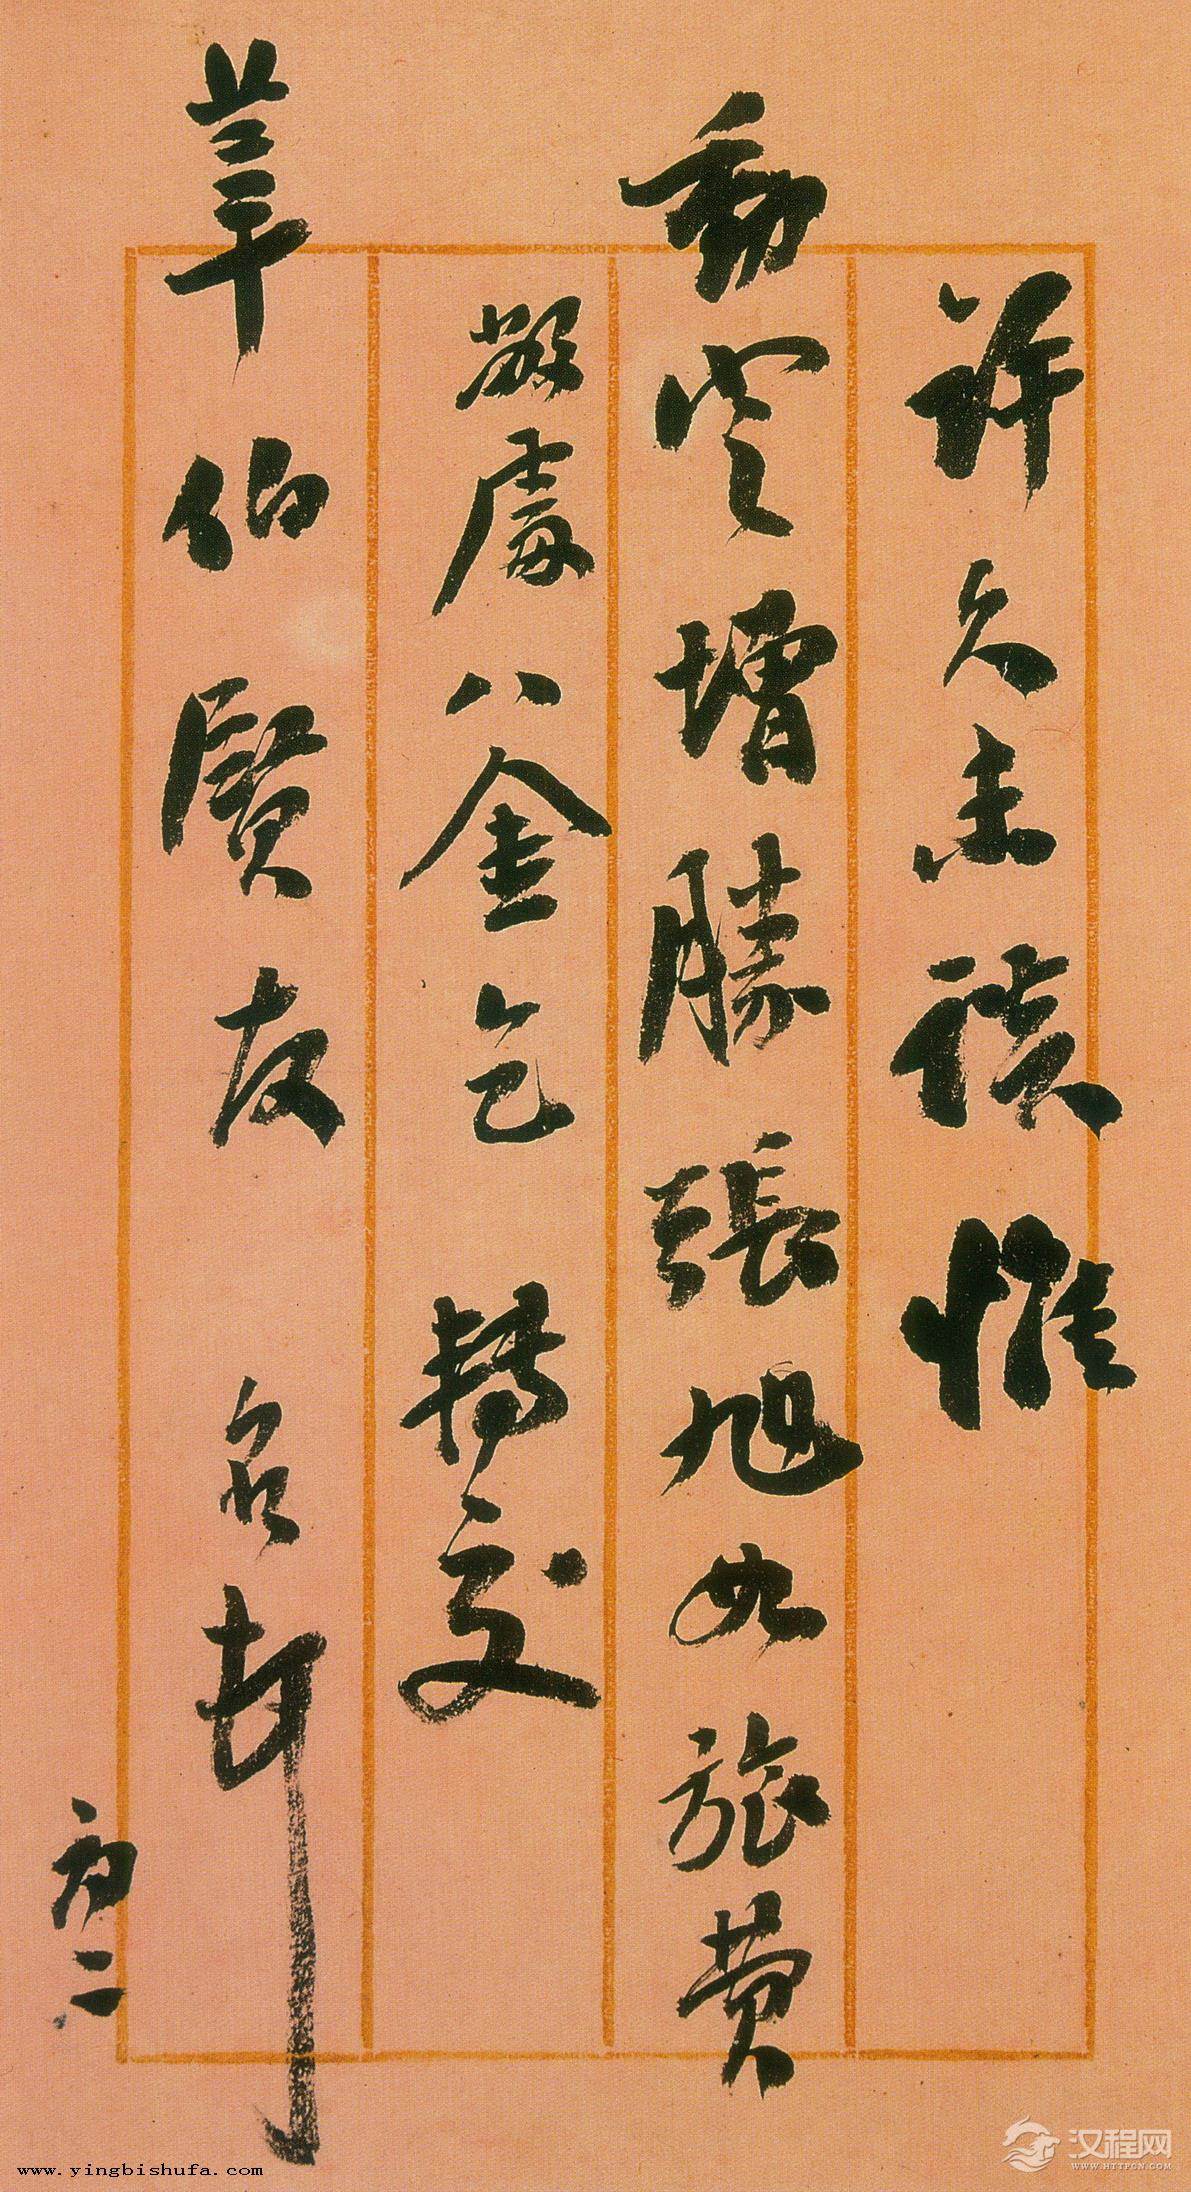 許久未談惟
動定增勝張旭如旅費
敝處八金乞 轉交
莘伯賢友 名頓
初二
www.yingbishufa.com
汉程网
WWW.HTTPCN.COM